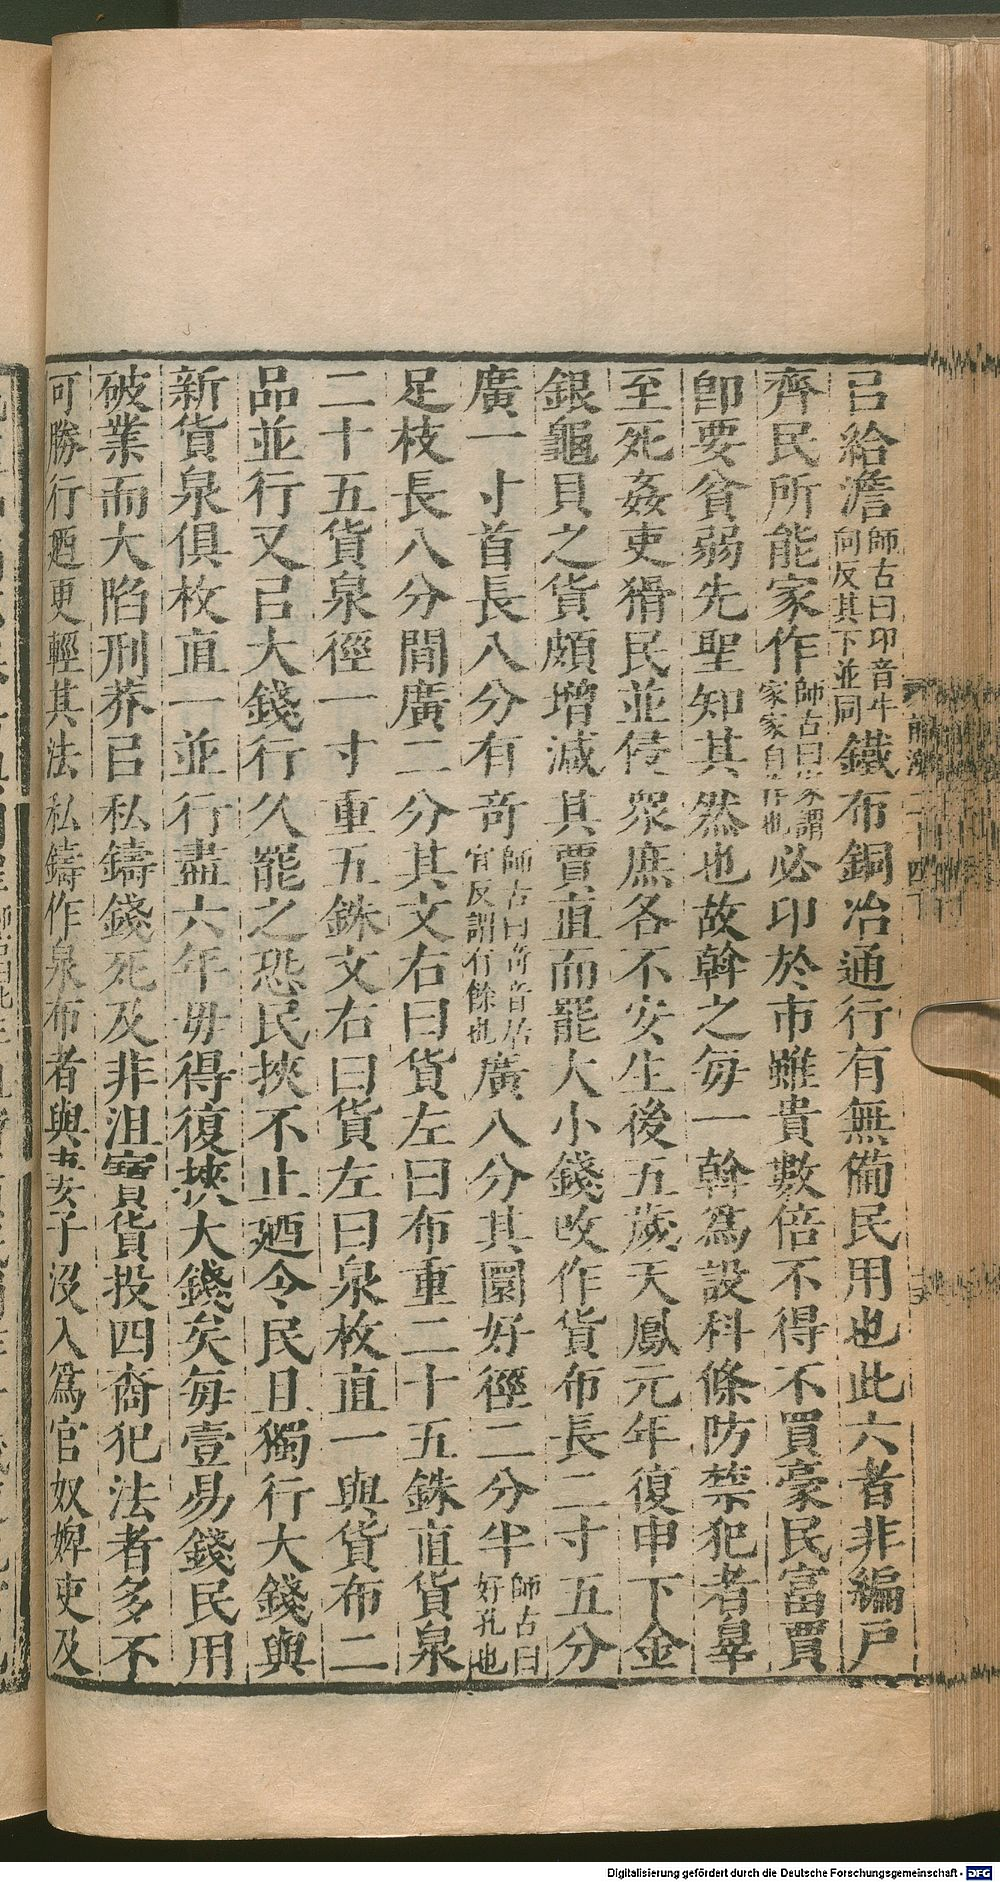 㠯給澹師古曰卬音牛向反其下並同鐵布銅冶通行有無備民用也此六者非編戶
齊民所能家作師古曰家謂家家自作也必卬於市雖貴數倍不得不買豪民富賈
卽要貧弱先聖知其然也故斡之每一斡爲設科條防禁犯者辠
至死姦吏猾民並侵眾庶各不安生後五歲天鳳元年復申下金
銀龜貝之貨頗增減其賈直而罷大小錢改作貨布長二寸五分
廣一寸首長八分有奇師古曰奇音居宜反謂有餘也廣八分其圜好徑二分半師古曰好孔也
足枝長八分間廣二分其文右曰貨左曰布重二十五銖直貨泉
二十五貨泉徑一寸重五銖文右曰貨左曰泉枚直一與貨布二
品並行又㠯大錢行久罷之恐民挾不止迺令民且獨行大錢與
新貨泉俱枚直一並行盡六年毋得復挾大錢矣每壹易錢民用
破業而大陷刑莽㠯私鑄錢死及非沮寶貨投四裔犯法者多不
可勝行迺更輕其法私鑄作泉布者與妻子沒入爲官奴婢吏及
Digitalisierung gefördert durch die Deutsche Forschungsgemeinschaft - DFG